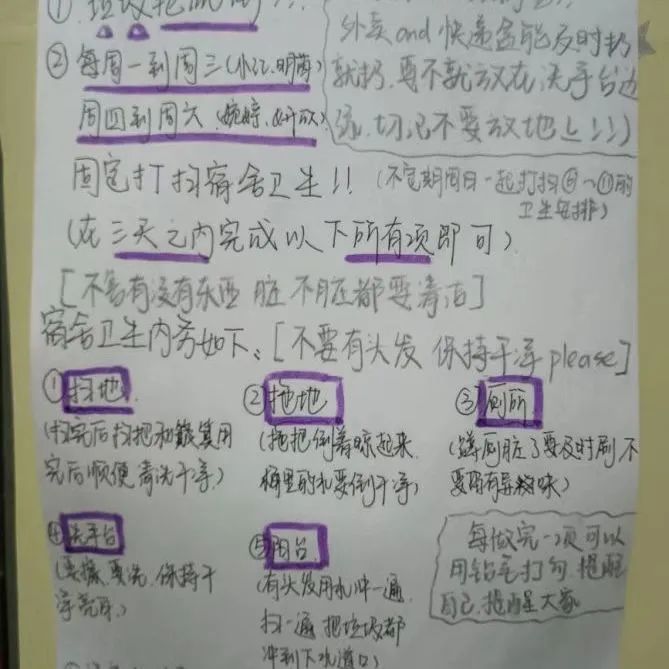 外卖and快递盒能及时扔
就扔,要不就放在洗手台边
切记不要放地上!!!)
②每周一到周三(小江、明
周四到周六(婉婷、
固定打扫宿舍卫生!!(不定期周日一起打扫①~⑪的
卫生安排)
(在三天之内完成以下所有项即可)
[不管有没有东西 脏 不脏都要清洁]
宿舍卫生内务如下:[不要有头发 保持干净 please]
①扫地
(扫完后扫把和簸箕用
完后顺便清洗干净)
②拖地
(拖把倒着晾起来.
桶里的水要倒干净)
③厕所
(蹲厕脏了要及时刷,不
要留有异味)
④洗手台
(要擦,要洗,保持干
净亮
⑤阳台
(有头发用水冲一遍
扫一遍 把垃圾都
冲到下水道口)
每做完一项可以
用铅笔打勾,提醒
自己,提醒大家